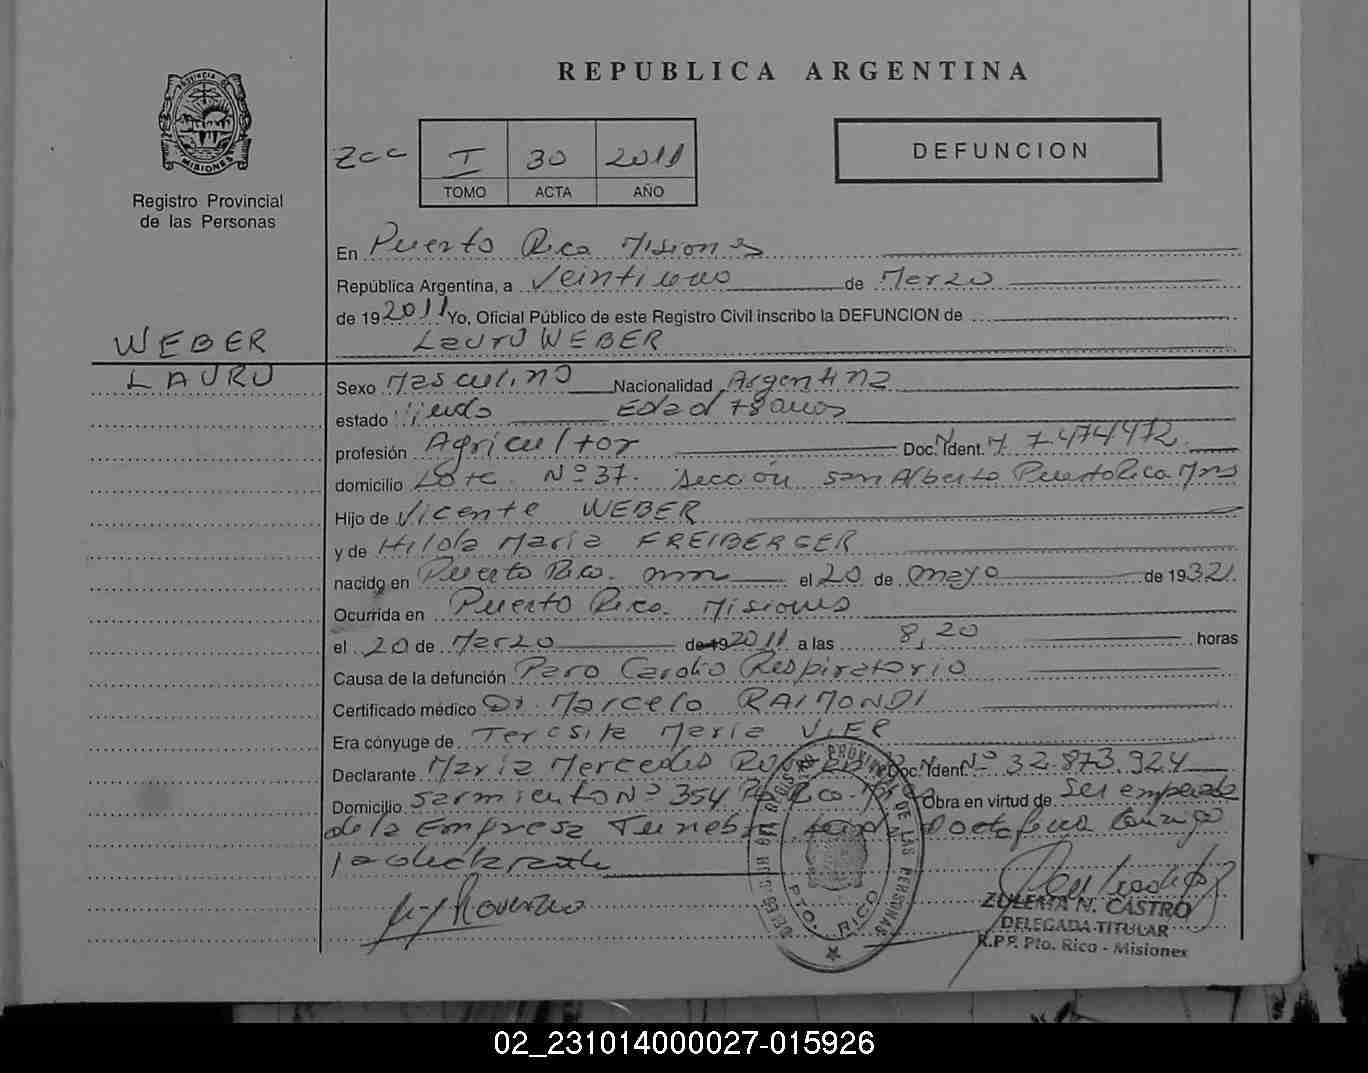 REPUBLICA ARGENTINA
PROVINCIA DE
MISIONES
Registro Provincial
de las Personas
I 30 2011
TOMO ACTA AÑO
DEFUNCION
En Puerto Rico Misiones
República Argentina, a Veintiuno de Marzo
de 192011 Yo, Oficial Público de este Registro Civil inscribo la DEFUNCION de
Lauro WEBER
WEBER
LAURO
Sexo Masculino Nacionalidad Argentina
estado Viudo Edad 78 años
profesión Agricultor Doc. Ident. 7.474472
domicilio Lote Nº 37. Sección San Alberto Puerto Rico Mns
Hijo de Vicente WEBER
y de Hilda María FREIBERGER
nacido en Puerto Rico. mns el 20 de mayo de 1932
Ocurrida en Puerto Rico. Misiones
el 20 de Marzo de 19 2011 a las 8,20 horas
Causa de la defunción Paro Cardio Respiratorio
Certificado médico Dr. Marcelo RAIMONDI
Era cónyuge de Teresita María VIER
Declarante María Mercedes Doc. Ident. Nº 32.873.924
Domicilio Sarmiento Nº 354 Pto Rico. Mns Obra en virtud de Ser empleada
de la Empresa conmigo
la declarante
REGISTRO PROVINCIAL DE LAS PERSONAS
PTO. RICO
ZULEMA N. CASTRO
DELEGADA TITULAR
R.P.P. Pto. Rico - Misiones
02_231014000027-015926